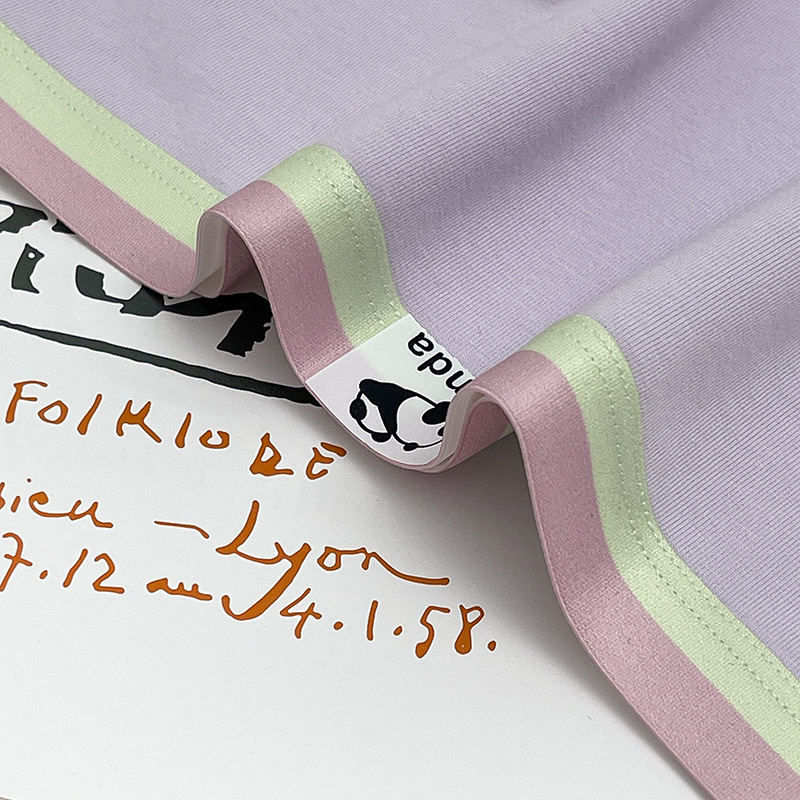 FOlKloRE
sieu – Lyon
7.12 au 4.1.58.
nda